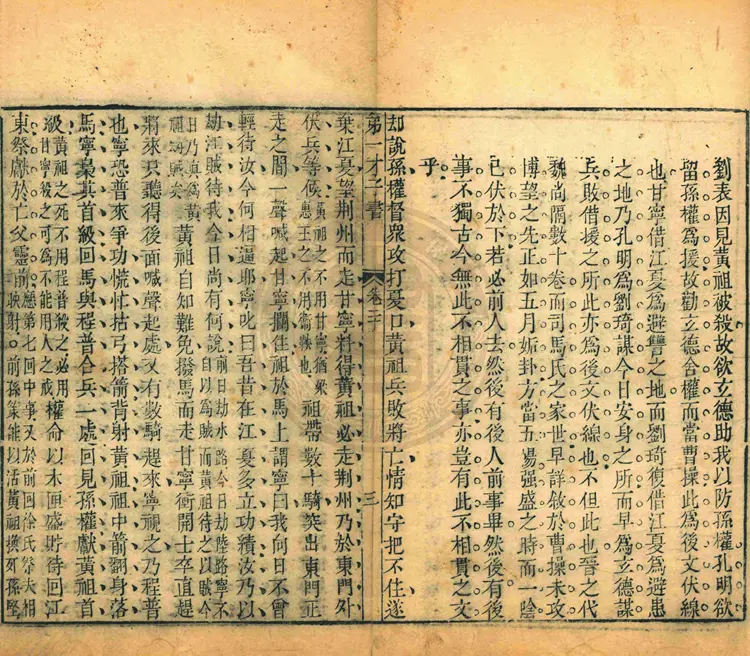 劉表因見黃祖被殺故欲玄德助我以防孫權孔明欲
留孫權爲援故勸玄德舍權而當曹操此爲後文伏線
也甘寧借江夏爲避讐之地而劉琦復借江夏爲避患
之地乃孔明爲劉琦謀今日安身之所而早爲玄德謀
兵敗借援之所此亦爲後文伏線也不但此也晉之代
魏尚隔數十卷而司馬氏之家世早詳敘於曹操未攻
博望之先正如五月姤卦方當五陽強盛之時而一陰
已伏於下若必前人去然後有後人前事畢然後有後
事不獨古今無此不相貫之事亦豈有此不相貫之文
乎
却說孫權督眾攻打夏口黃祖兵敗將亡情知守把不住遂
第一才子書 卷三十 三
棄江夏望荊州而走甘寧料得黃祖必走荊州乃於東門外
伏兵等候黃祖之不用甘寧猶梁惠王之不用衛鞅也祖帶數十騎突出東門正
走之間一聲喊起甘寧攔住祖於馬上謂寧曰我向日不曾
輕待汝今何相逼耶寧叱曰吾昔在江夏多立功績汝乃以
劫江賊待我今日尚有何說前日劫水路今日劫陸路寧不自以爲賊而黃祖待之以賊今
日乃眞爲黃祖劫賊矣黃祖自知難免撥馬而走甘寧衝開士卒直趕
將來只聽得後面喊聲起處又有數騎趕來寧視之乃程普
也寧恐普來爭功慌忙拈弓搭箭背射黃祖祖中箭翻身落
馬寧梟其首級回馬與程普合兵一處回見孫權獻黃祖首
級黃祖之死不用程普殺之必用甘寧殺之可爲不能用人之戒權命以木匣盛貯待回江
東祭獻於亡父靈前應第七回中事又於前回徐氏祭夫相映射。前孫策能以活黃祖換死孫堅